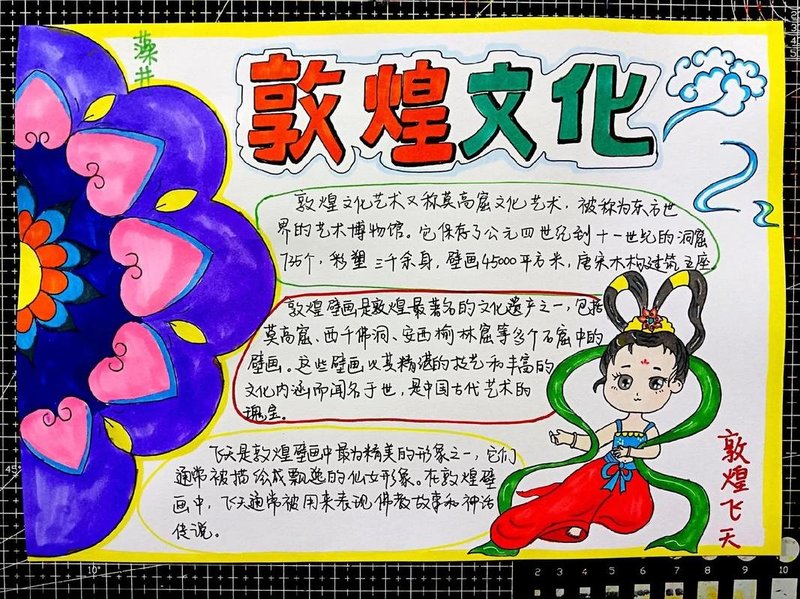 藻井
敦煌文化
敦煌文化艺术又称莫高窟文化艺术，被称为东方世
界的艺术博物馆。它保存了公元四世纪到十一世纪的洞窟
735个，彩塑三千余身，壁画45000平方米，唐宋木构建筑五座
敦煌壁画是敦煌最著名的文化遗产之一，包括
莫高窟、西千佛洞、安西榆林窟等多个石窟中的
壁画。这些壁画以其精湛的技艺和丰富的
文化内涵而闻名于世，是中国古代艺术的
瑰宝。
飞天是敦煌壁画中最为精美的形象之一，它们
通常被描绘成飘逸的仙女形象。在敦煌壁
画中，飞天通常被用来表现佛教故事和神话
传说。
敦煌飞天
45°
10°
2 3 4 5 6 7 8 9 10